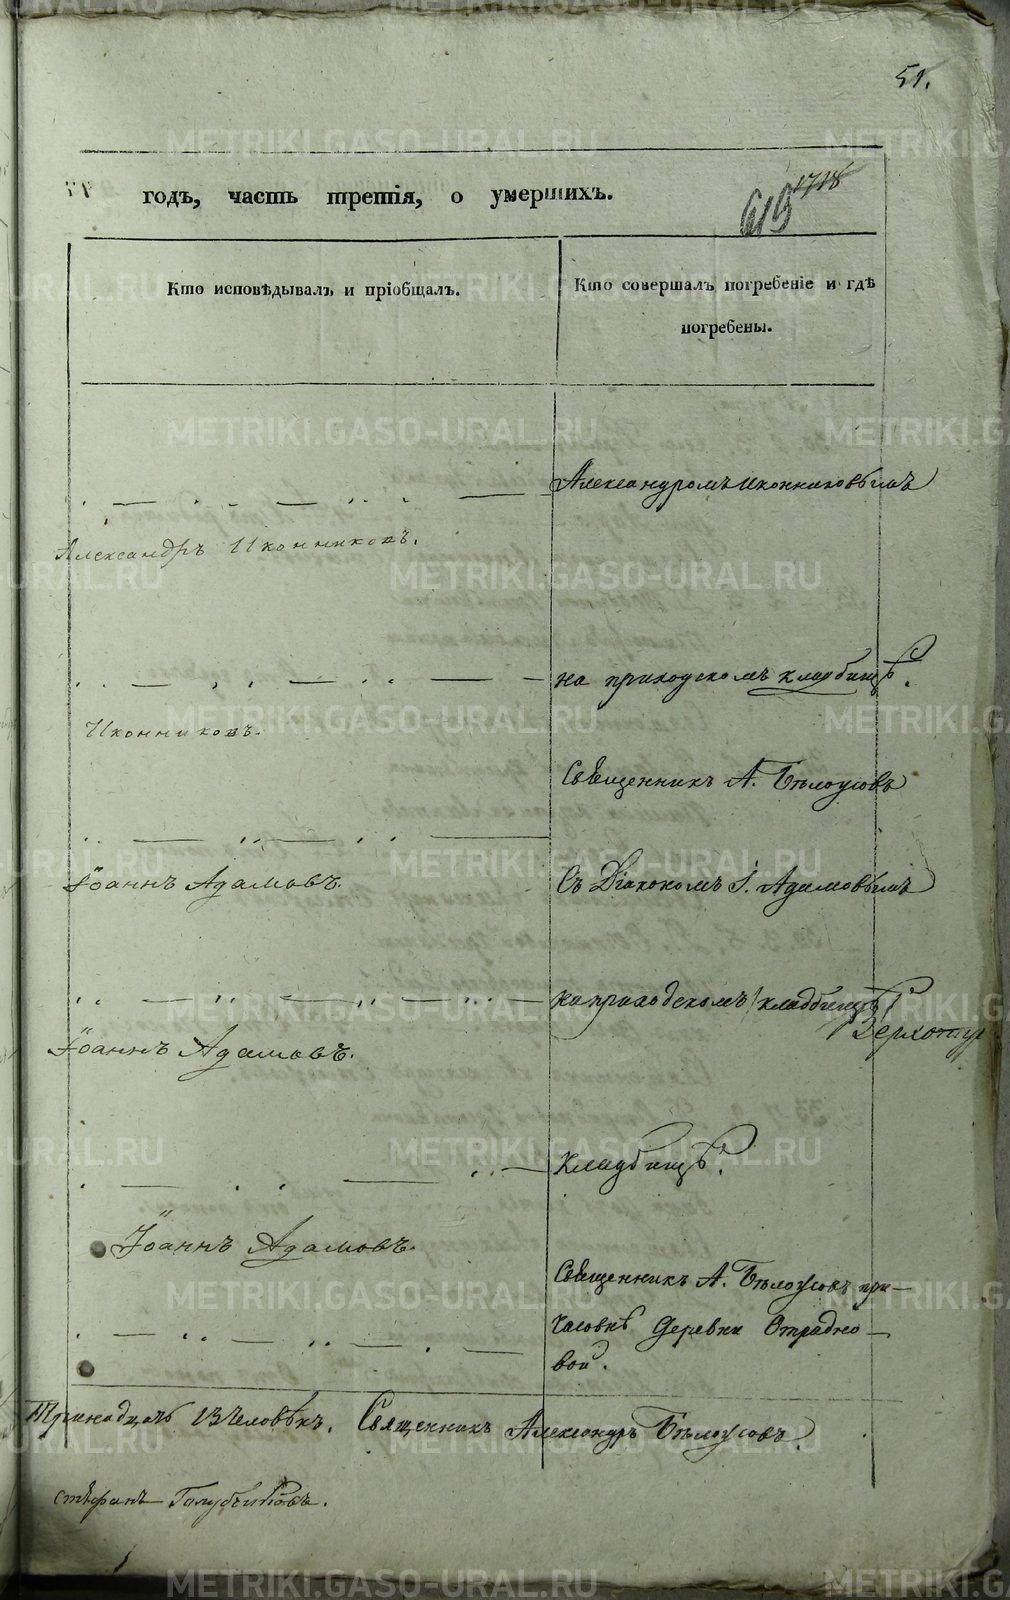 51.
годъ, часть третія, о умершихъ.
615 1718
Кто исповѣдывалъ и пріобщалъ.
Кто совершалъ погребеніе и гдѣ
погребены.
Александромъ Иконниковымъ
Александръ Иконниковъ.
на приходскомъ кладбищѣ.
Иконниковъ.
Священникъ А. Бѣлоусовъ
Іоаннъ Адамовъ.
Съ Діакономъ І. Адамовымъ
на приходскомъ кладбищѣ
Верхотур
Іоаннъ Адамовъ.
кладбищѣ.
Іоаннъ Адамовъ.
Священникъ А. Бѣлоусовъ при
часовнѣ деревни Отрадно-
вой.
Тринадцать 13 человѣкъ. Священникъ Александръ Бѣлоусовъ.
Стефанъ Голубчиковъ.
METRIKI.GASO-URAL.RU